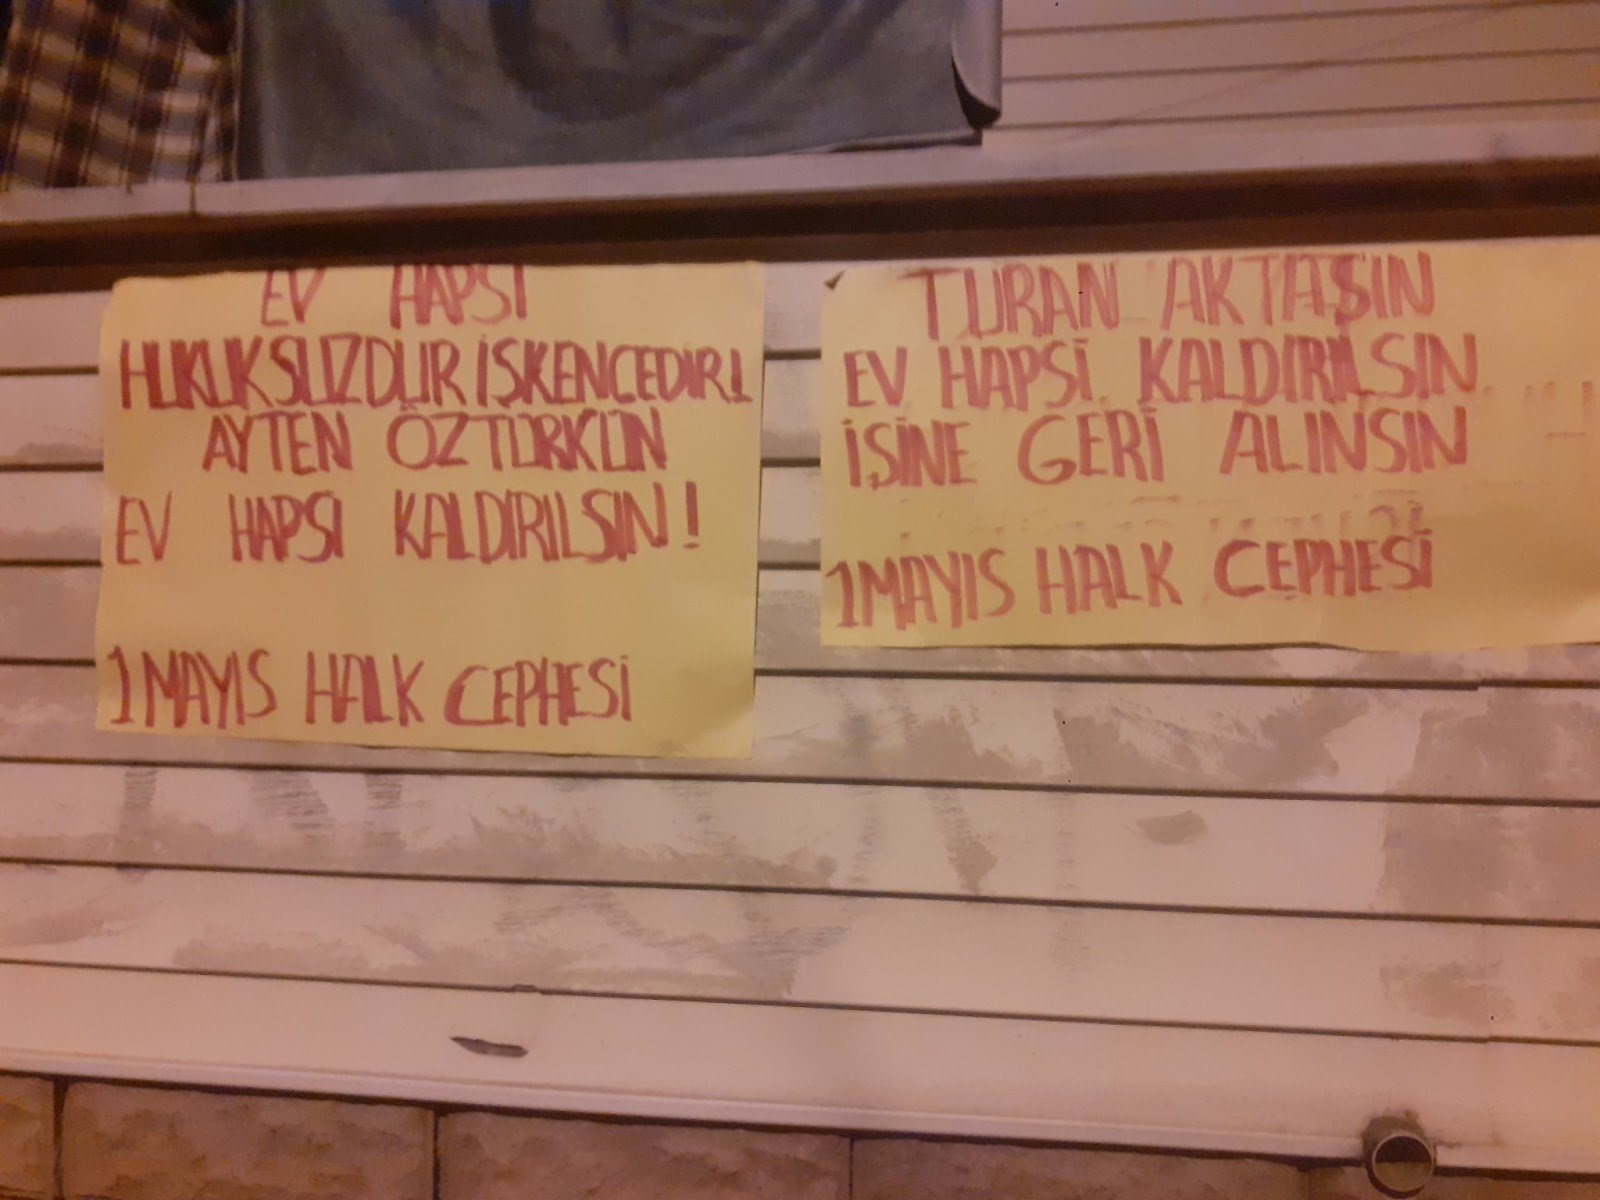 EV HAPSİ
HUKUKSUZDUR İŞKENCEDİR!
AYTEN ÖZTÜRKÜN
EV HAPSİ KALDIRILSIN!
1 MAYIS HALK CEPHESİ
TURAN AKTAŞIN
EV HAPSİ KALDIRILSIN
İŞİNE GERİ ALINSIN
1 MAYIS HALK CEPHESİ